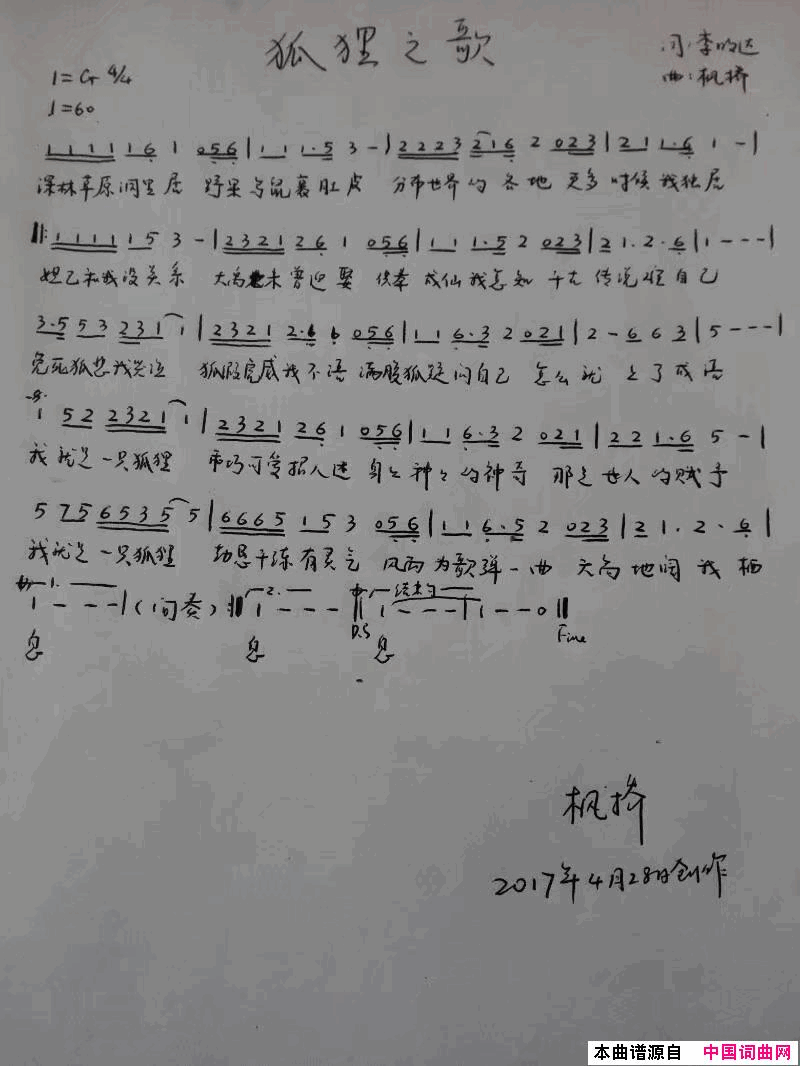 狐狸之歌
词:李明达
曲:枫桥
1=G 4/4
♩=60
1 1 1 1 1 6 1 0 5 6 | 1 1 1·5 3 - | 2 2 2 3 2 1 6 2 0 2 3 | 2 1 1·6 1 - |
深林草原洞里居 野果与鼠裹肚皮 分布世界的各地 更多时候我独居
‖: 1 1 1 1 1 5 3 - | 2 3 2 1 2 6 1 0 5 6 | 1 1 1·5 2 0 2 3 | 2 1·2·6 | 1 - - - |
妲己和我没关系 大禹未曾迎娶 供奉成仙我怎知 千古传说难自己
3·5 5 3 2 3 1 1 | 2 3 2 1 2·6 6 0 5 6 | 1 1 6·3 2 0 2 1 | 2 - 6 6 3 | 5 - - - |
兔死狐悲我哭泣 狐假虎威我不语 满腹狐疑问自己 怎么就上了成语
1 5 2 2 3 2 1 1 | 2 3 2 1 2 6 1 0 5 6 | 1 1 6·3 2 0 2 1 | 2 2 1·6 5 - |
我就是一只狐狸 乖巧可爱招人迷 身上神之的神奇 那是世人的赋予
5 7 5 6 5 3 5 5 | 6 6 6 5 1 5 3 0 5 6 | 1 1 6·5 2 0 2 3 | 2 1·2·6 |
我就是一只狐狸 干练有灵气 风雨为歌弹一曲 天高地阔我栖
1. 1 - - - | (间奏) :‖ 2. 1 - - - ‖ 结束句 1 - - - | 1 - - 0 ‖
D.S Fine
息 息 息
枫桥
2017年4月28日创作
本曲谱源自 中国词曲网